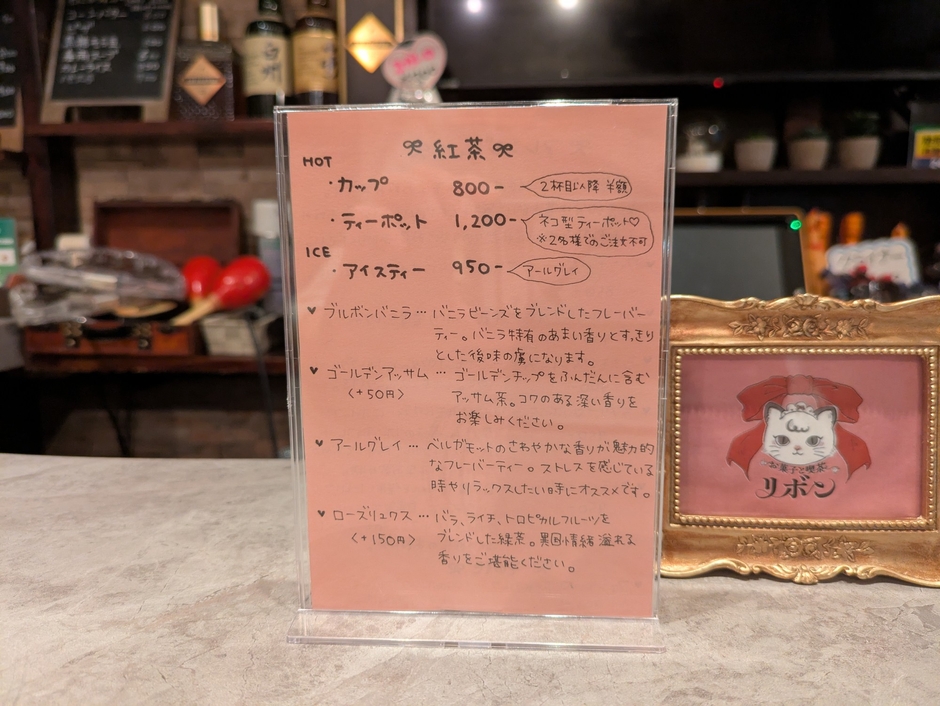 ୨୧ 紅茶 ୨୧
HOT
・カップ 800- 2杯目以降 半額
・ティーポット 1,200- ネコ型ティーポット♡
※2名様でのご注文不可
ICE
・アイスティー 950- アールグレイ
♥ ブルボンバニラ … バニラビーンズをブレンドしたフレーバー
ティー。バニラ特有のあまい香りとすっきり
とした後味の虜になります。
♥ ゴールデンアッサム … ゴールデンチップをふんだんに含む
〈+50円〉 アッサム茶。コクのある深い香りを
お楽しみください。
♥ アールグレイ … ベルガモットのさわやかな香りが魅力的
なフレーバーティー。ストレスを感じている
時やリラックスしたい時にオススメです。
♥ ローズリュクス … バラ、ライチ、トロピカルフルーツを
〈+150円〉 ブレンドした緑茶。異国情緒溢れる
香りをご堪能ください。
お菓子と喫茶
リボン
白州